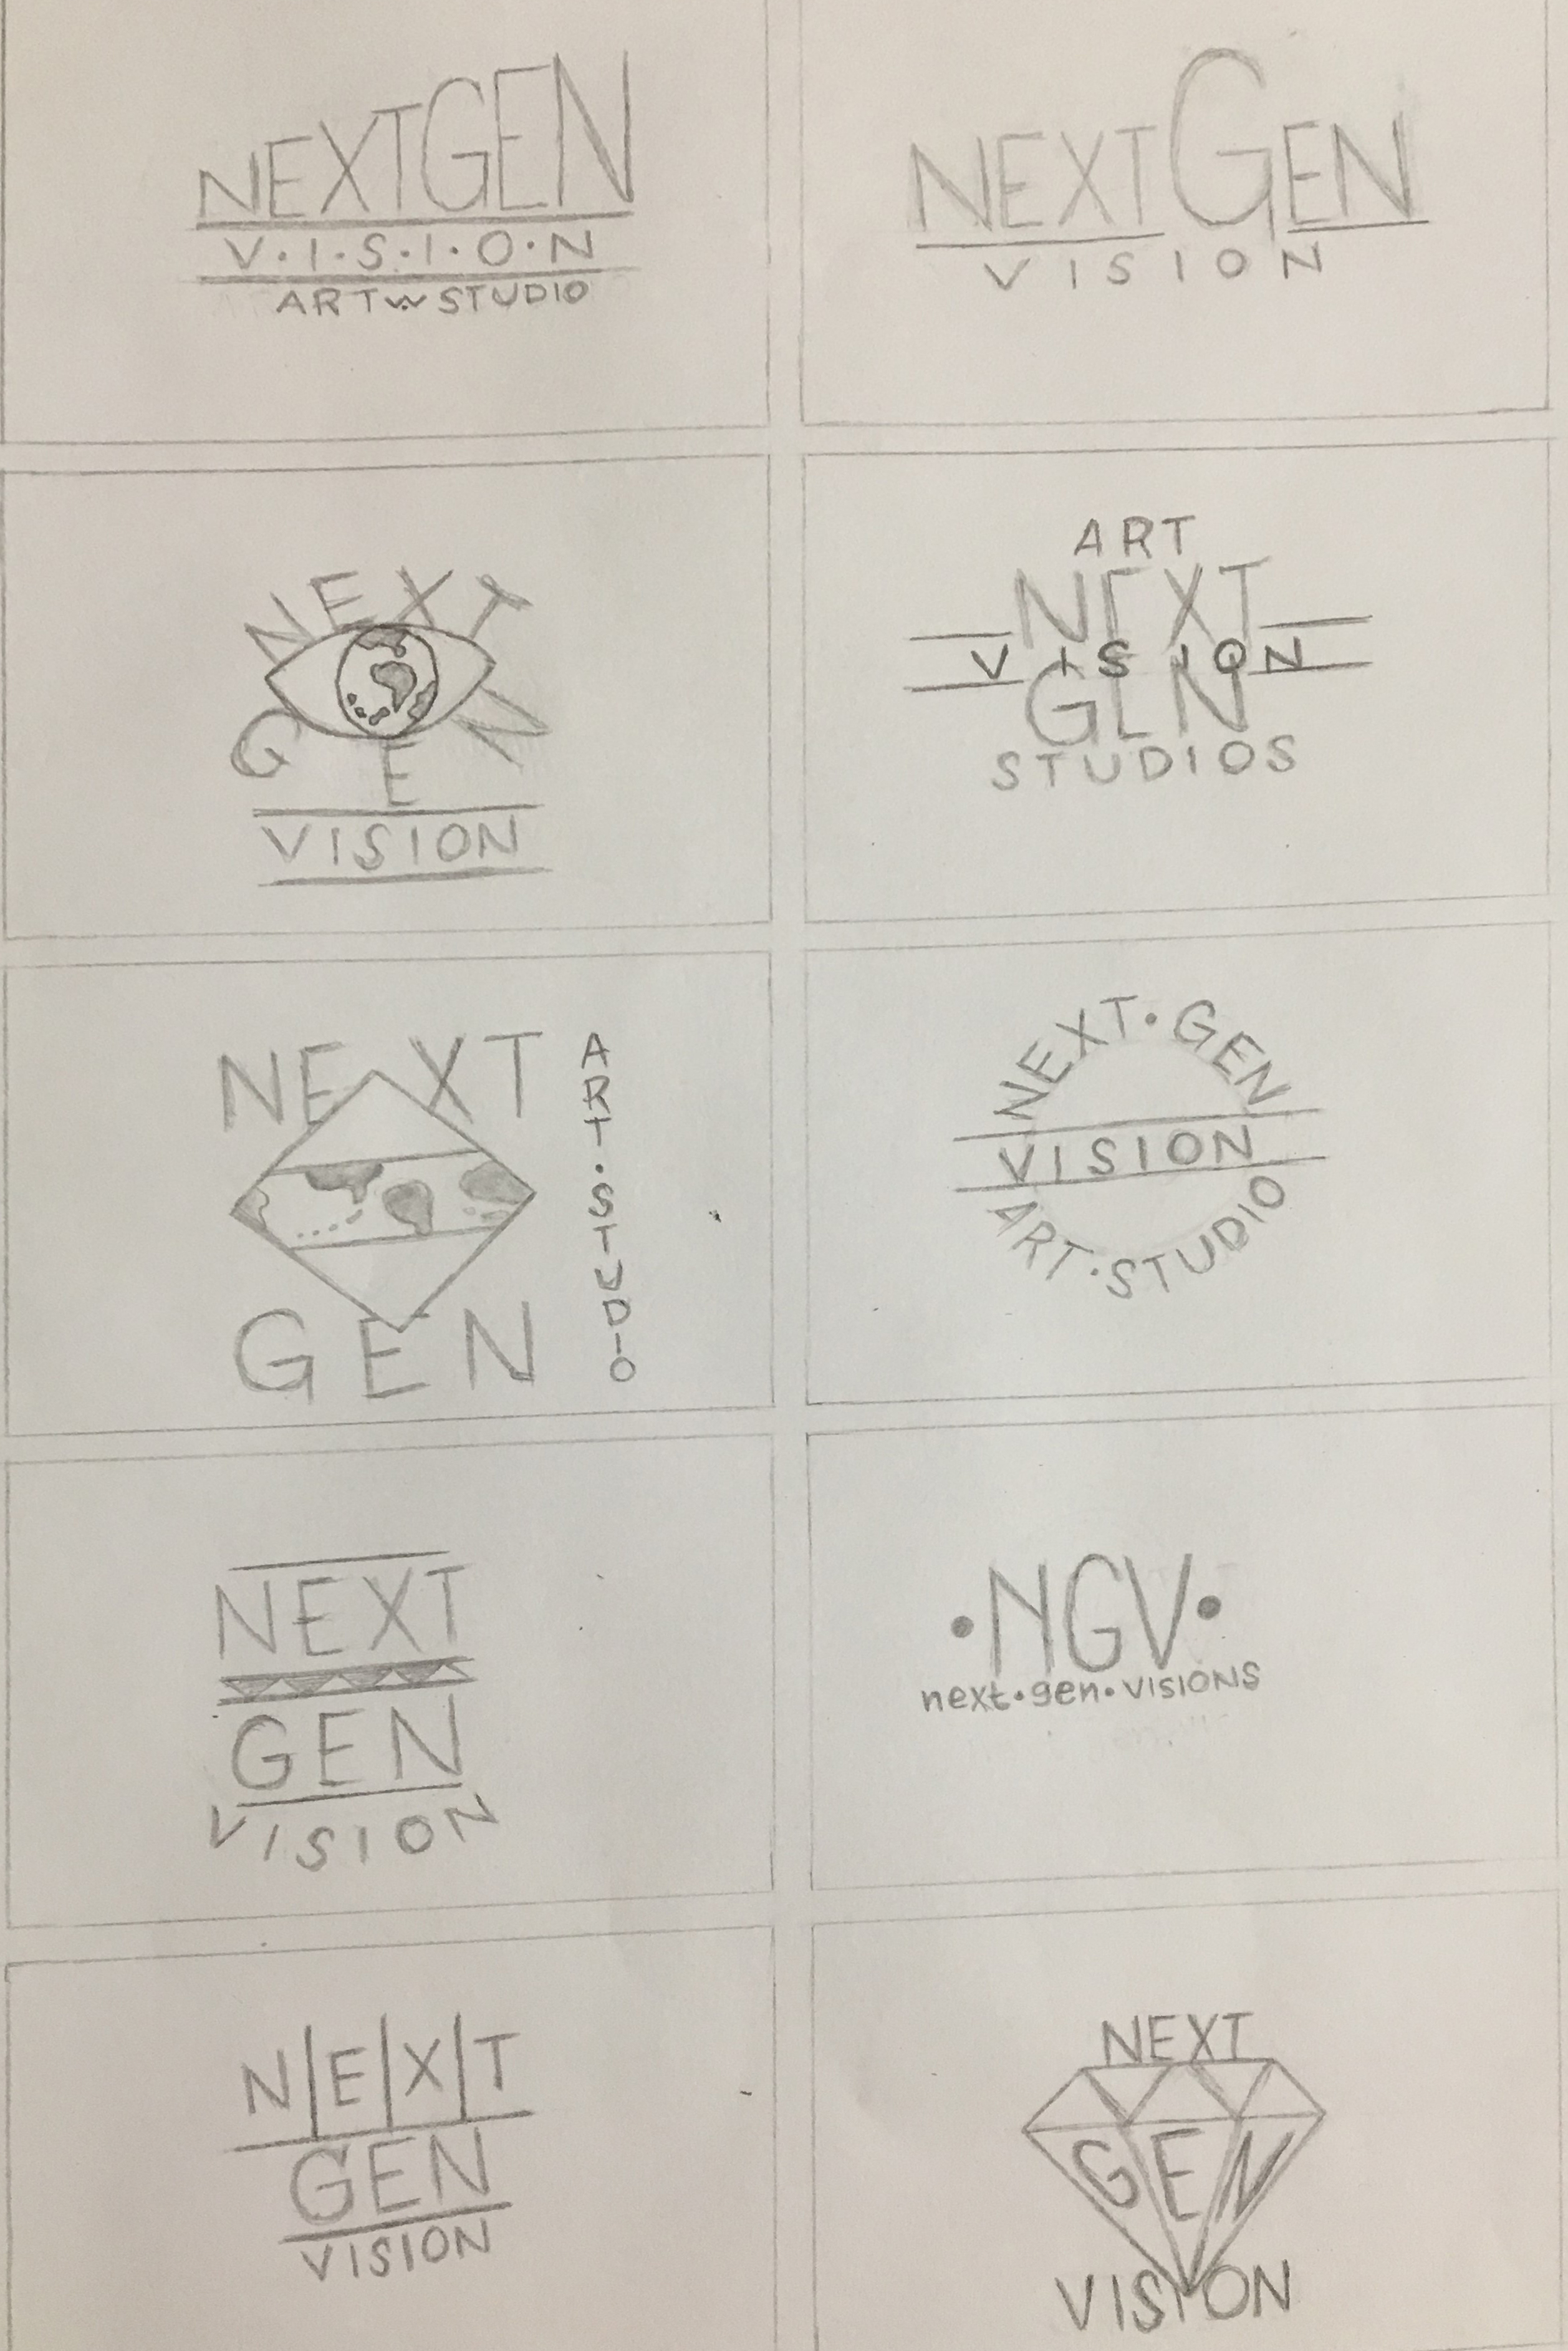 NEXTGEN
V·I·S·I·O·N
ART STUDIO
NEXTGEN
VISION
NEXT
GEN
VISION
ART
NEXT
VISION
GEN
STUDIOS
NEXT
GEN
ART·STUDIO
NEXT·GEN
VISION
ART·STUDIO
NEXT
GEN
VISION
•NGV•
next·gen·VISIONS
N|E|X|T
GEN
VISION
NEXT
GEN
VISION